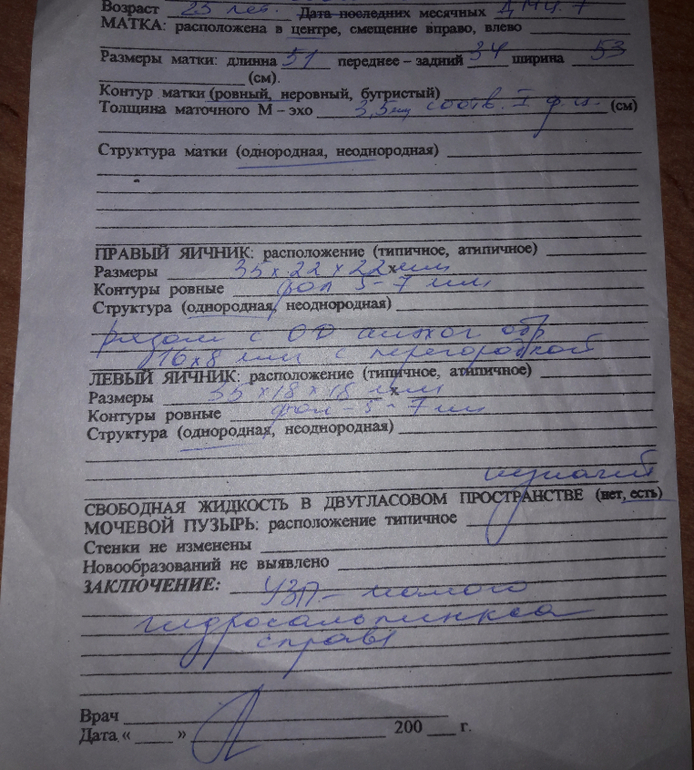 Возраст 25 лет. Дата последних месячных ДМЦ. 7
МАТКА: расположена в центре, смещение вправо, влево
Размеры матки: длинна 51 переднее – задний 34 ширина 53
(см).
Контур матки (ровный, неровный, бугристый)
Толщина маточного М – эхо 3,5мм соотв. I ф.ц. (см)
Структура матки (однородная, неоднородная)
ПРАВЫЙ ЯИЧНИК: расположение (типичное, атипичное)
Размеры 35 х 22 х 22 х мм
Контуры ровные фол 5-7 мм
Структура (однородная, неоднородная)
рядом с ОД анэхог обр
16х8 мм с перегородкой
ЛЕВЫЙ ЯИЧНИК: расположение (типичное, атипичное)
Размеры 35 х 18 х 18 х мм
Контуры ровные фол – 5 - 7 мм
Структура (однородная, неоднородная)
СВОБОДНАЯ ЖИДКОСТЬ В ДВУГЛАСОВОМ ПРОСТРАНСТВЕ (нет, есть)
МОЧЕВОЙ ПУЗЫРЬ: расположение типичное
Стенки не изменены
Новообразований не выявлено
ЗАКЛЮЧЕНИЕ: УЗП –
гидросальпинкса
справа
Врач
Дата « » 200 г.